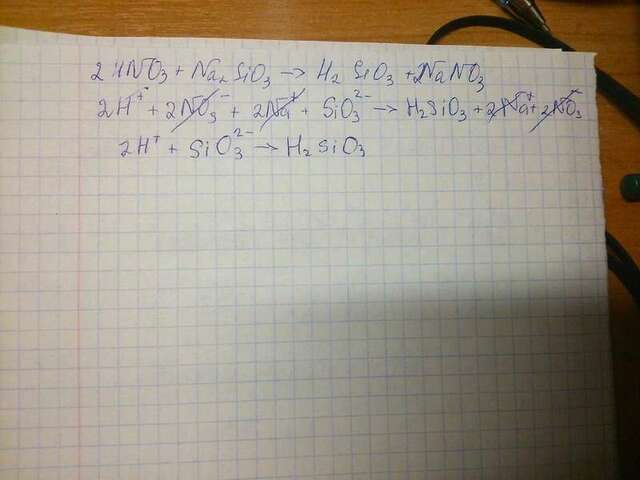 2HNO₃ + Na₂SiO₃ → H₂SiO₃ + 2NaNO₃
2H⁺ + 2NO₃⁻ + 2Na⁺ + SiO₃²⁻ → H₂SiO₃ + 2Na⁺ + 2NO₃⁻
2H⁺ + SiO₃²⁻ → H₂SiO₃